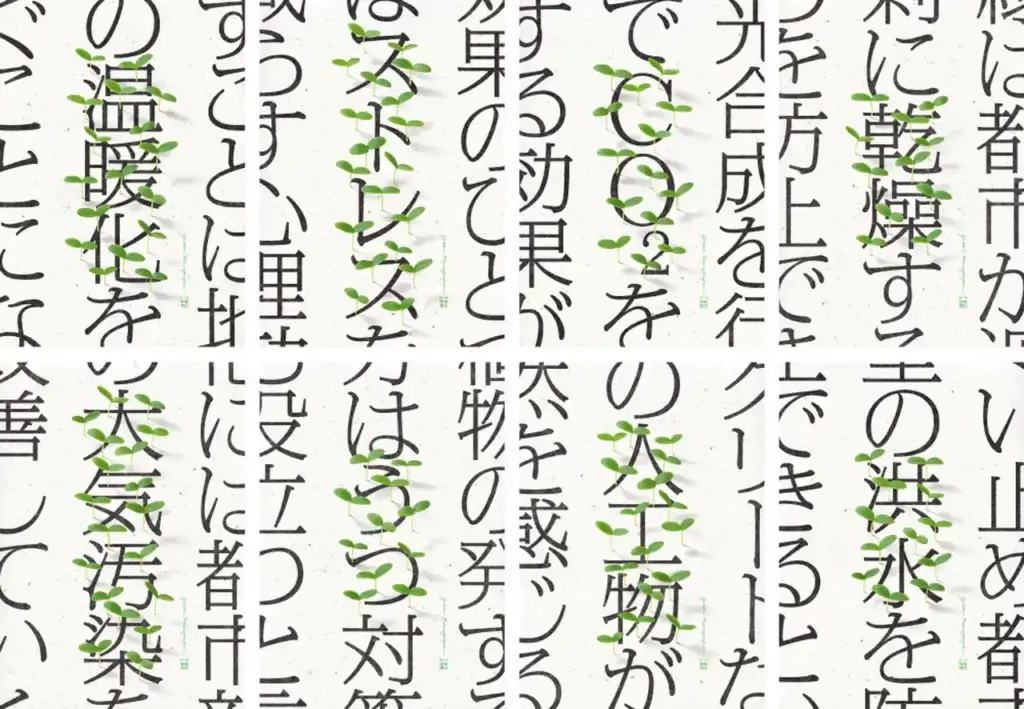 すことは地
の温暖化を
ぐことにな
効果のひと
はストレスを
減らす心理的
光合成を行
でCO₂を
する効果が
緑は都市が過
剰に乾燥する
のを防止でき
化には都市部
の大気汚染を
改善していく
植物の発する
力はうつ対策
も役立つと言
クリートだ
の人工物が
快を感じる
い止め都市
型の洪水を防
止できると、